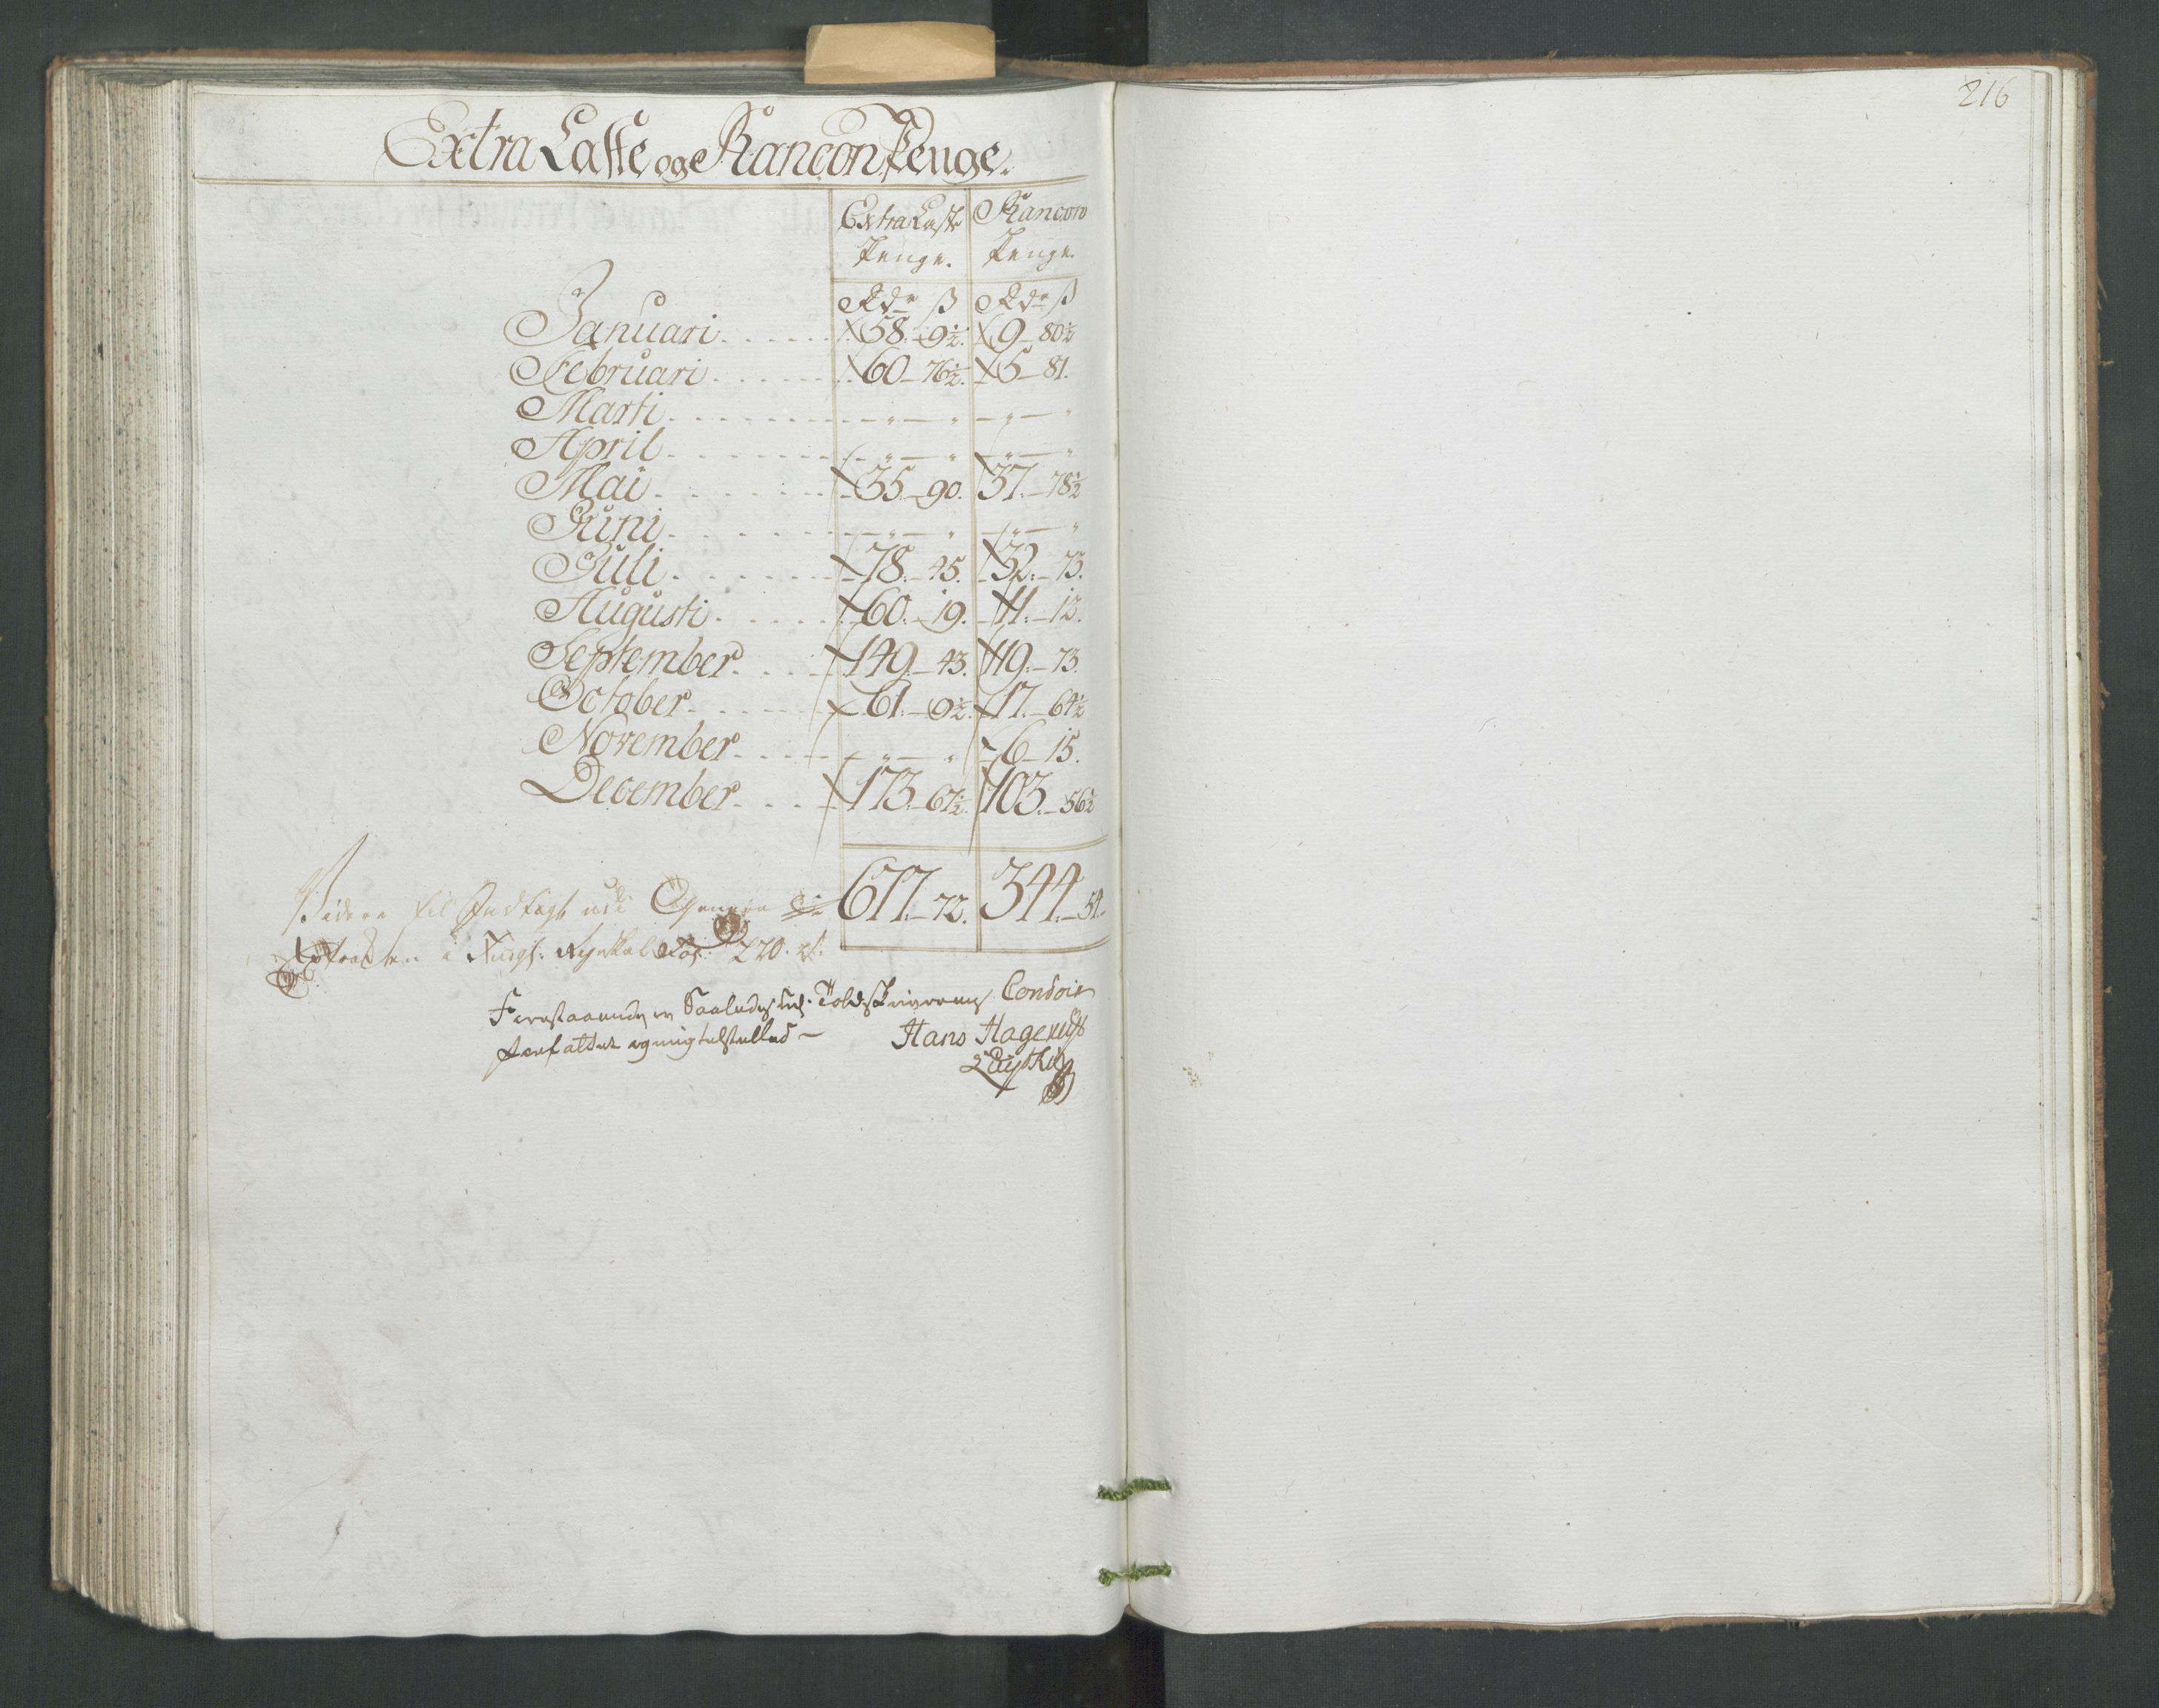 216
Extra Laste og Rancon Penge.
Extra Laste Penge. Rancon Penge.
Rdr ß Rdr ß
Januari 58 - 9½. 9 - 80½
Februari 60 - 76½. 5 - 81.
Marti " — " " — "
April " — " " — "
Mai 35 - 90. 37 - 78½
Juni " — " " — "
Juli 78 - 45. 32 - 73.
Augusti 60 - 19. 11 - 12.
September 149 - 43. 119 - 73.
October 61 - 9½. 17 - 64½
November " — " 6 - 15.
December 173 - 67½. 103 - 56½
677 - 72. 344 - 54.
til Indtægt udi
i 220.
Forestaaende er Saaledes ved Toldskriverens Contoir
forfattet og mig tilstilled —
Hans Hagerup